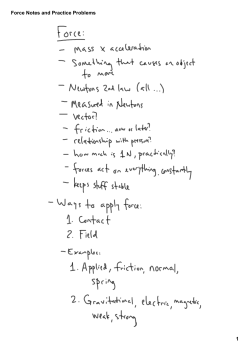 Force Notes and Practice Problems
Force:
- mass x acceleration
- Something that causes an object
to move
- Newtons 2nd law (all ...)
- Measured in Newtons
- vector?
- friction... now or later?
- relationship with power?
- how much is 1N, practically?
- forces act on everything, constantly
- keeps stuff stable
- Ways to apply force:
1. Contact
2. Field
- Examples:
1. Applied, friction, normal,
spring
2. Gravitational, electric, magnetic,
weak, strong
1